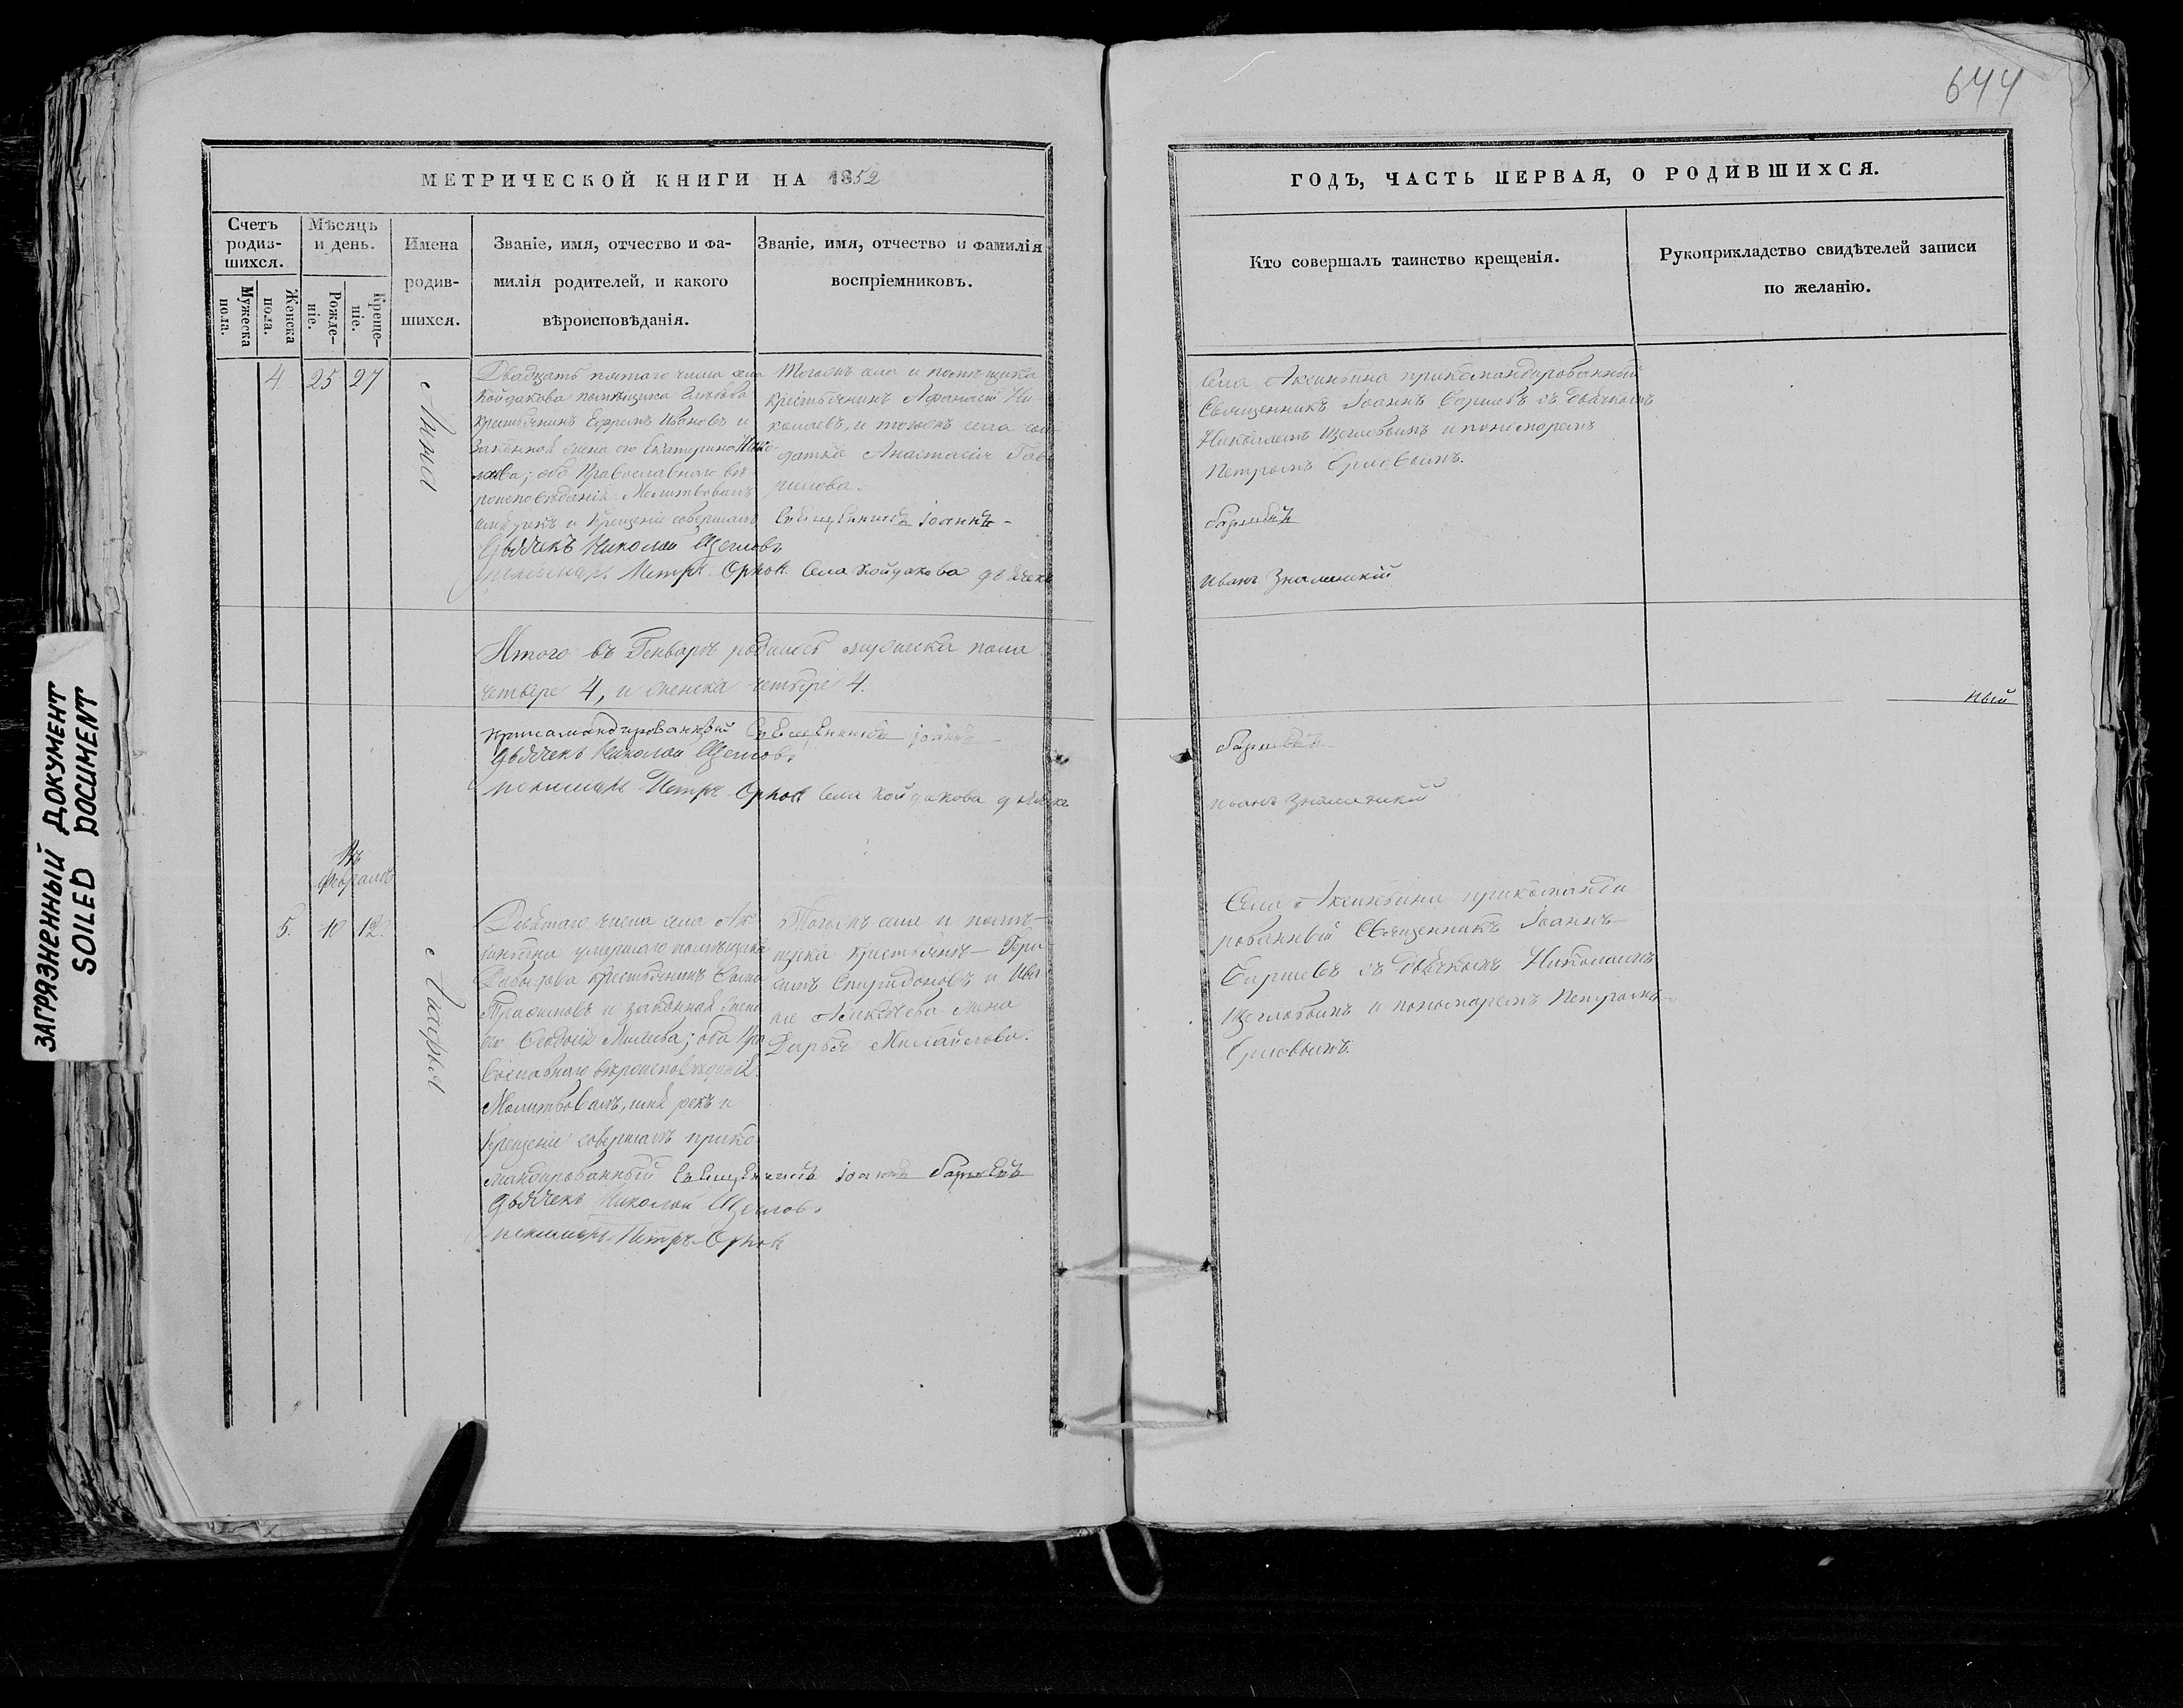 644
МЕТРИЧЕСКОЙ КНИГИ НА 1852
ГОДЪ, ЧАСТЬ ПЕРВАЯ, О РОДИВШИХСЯ.
Счетъ родив-шихся.
Мужеска пола.
Женска пола.
Мѣсяцъ и день.
Рожде-ніе.
Креще-ніе.
Имена
родив-
шихся.
Званіе, имя, отчество и фа-
милія родителей, и какого
вѣроисповѣданія.
Званіе, имя, отчество и фамилія
воспріемниковъ.
Кто совершалъ таинство крещенія.
Рукоприкладство свидѣтелей записи
по желанію.
4. 25 27
Анна
Двадцать пятаго числа села
Койдакова помѣщика Глѣбова
крестьянинъ Ефремъ Ивановъ и
законная жена его Екатерина
оба Православнаго вѣ
роисповѣданія. Молитвовалъ
имя рекъ и Крещеніе совершалъ Священникъ Іоаннъ
Дьячекъ Николай Щегловъ
пономарь Петръ Орловъ Села Койдакова дьячекъ
Тогожъ села и помѣщика
крестьянинъ Афанасій Ни
колаевъ, и тогожъ села сол
датка Анастасія Гав
рилова.
Села Аксиньина прикомандированный
Священникъ Іоаннъ Баршевъ съ дьячкомъ
Николаемъ Щегловымъ и пономаремъ
Петромъ Орловымъ.
Баршевъ
Иванъ Знаменскій
Итого въ Генварѣ родилось мужеска пола
четыре 4, и женска четыре 4.
прикомандированный Священникъ Іоаннъ
Дьячекъ Николай Щегловъ
пономарь Петръ Орловъ Села Койдакова дьячекъ
ный
Баршевъ
Иванъ Знаменскій
Въ
Февралѣ
5. 10 12.
Агафья
Девятаго числа села Ак
синьина умершаго помѣщика
Давыдова крестьянинъ
Трофимовъ и законная жена
его оба Пра
вославнаго вѣроисповѣданія.
Молитвовалъ, имя рекъ и
Крещеніе совершалъ прико
мандированный Священникъ Іоаннъ Баршевъ
Дьячекъ Николай Щегловъ
пономарь Петръ Орловъ
Тогожъ села и помѣ-
щика крестьянинъ Гера
симъ Спиридоновъ и
Алексѣева жена
Дарья Михайлова.
Села Аксиньина прикоманди
рованный Священникъ Іоаннъ
Баршевъ съ дьячкомъ Николаемъ
Щегловымъ и пономаремъ Петромъ
Орловымъ.
ЗАГРЯЗНЕННЫЙ ДОКУМЕНТ
SOILED DOCUMENT